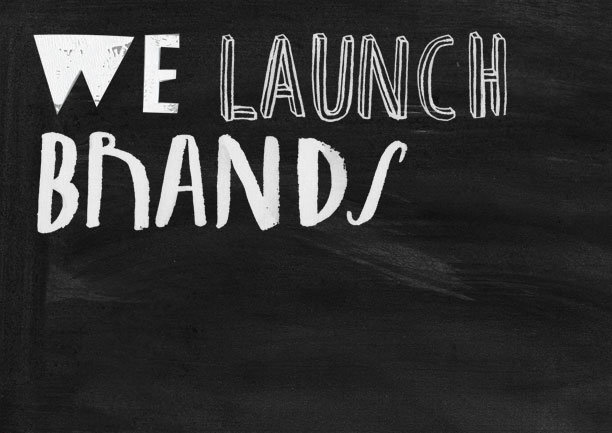 WE LAUNCH
BRANDS